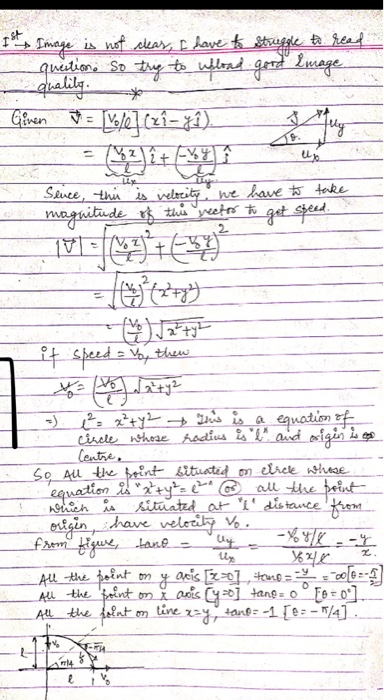 Ist → Image is not clear, I have to struggle to read
question. So try to upload good image
quality.
Given V⃗ = [V₀/ℓ] (xî - yĵ)
= (V₀x/ℓ) î + (-V₀y/ℓ) ĵ
ux uy
V⃗ uy θ ux
Since, this is velocity, we have to take
magnitude of this vector to get speed.
|V⃗| = √((V₀x/ℓ)² + (-V₀y/ℓ)²)
= √((V₀/ℓ)² (x²+y²))
= (V₀/ℓ) √x²+y²
if speed = V₀, then
V₀ = (V₀/ℓ) √x²+y²
⇒ ℓ² = x²+y² → This is a equation of
circle whose radius is "ℓ" and origin is
Centre.
So, All the point situated on circle whose
equation is "x²+y²=ℓ²" or all the point
which is situated at 'ℓ' distance from
origin, have velocity V₀.
From figure, tanθ = uy/ux = -V₀y/ℓ / V₀x/ℓ = -y/x.
All the point on y axis [x=0], tanθ = -y/0 = -∞ [θ=-π/2]
All the point on x axis [y=0] tanθ = 0 [θ=0°].
All the point on line x=y, tanθ = -1 [θ=-π/4].
ℓ V₀ -π/4
π/4 ℓ V₀